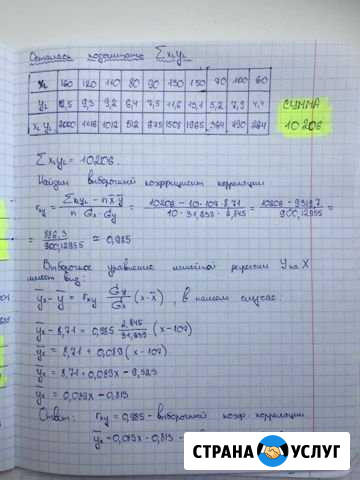 Осталось подсчитать Σxᵢyᵢ
xᵢ 160 120 110 80 90 130 150 70 100 60
yᵢ 12,5 9,3 9,2 6,4 7,5 11,6 13,1 5,2 7,9 4,4
xᵢyᵢ 2000 1116 1012 512 675 1508 1965 364 790 264
СУММА
10 206
Σxᵢyᵢ = 10206.
Найдем выборочный коэффициент корреляции
r_xy = (Σxᵢyᵢ - n x̄ ȳ) / (n · σₓ · σ_y) = (10206 - 10 · 107 · 8,71) / (10 · 31,639 · 2,845) = (10206 - 9319,7) / 900,12955 =
= 886,3 / 900,12955 ≈ 0,985
Выборочное уравнение линейной регрессии Y на X
имеет вид:
ȳₓ - ȳ = r_xy σ_y/σₓ (x - x̄), в нашем случае
ȳₓ - 8,71 = 0,985 2,845/31,639 (x - 107)
ȳₓ = 8,71 + 0,089(x - 107)
ȳₓ = 8,71 + 0,089x - 9,523
ȳₓ = 0,089x - 0,813
Ответ: r_xy = 0,985 - выборочный коэф. корреляции
ȳₓ = 0,089x - 0,813 -
СТРАНА УСЛУГ